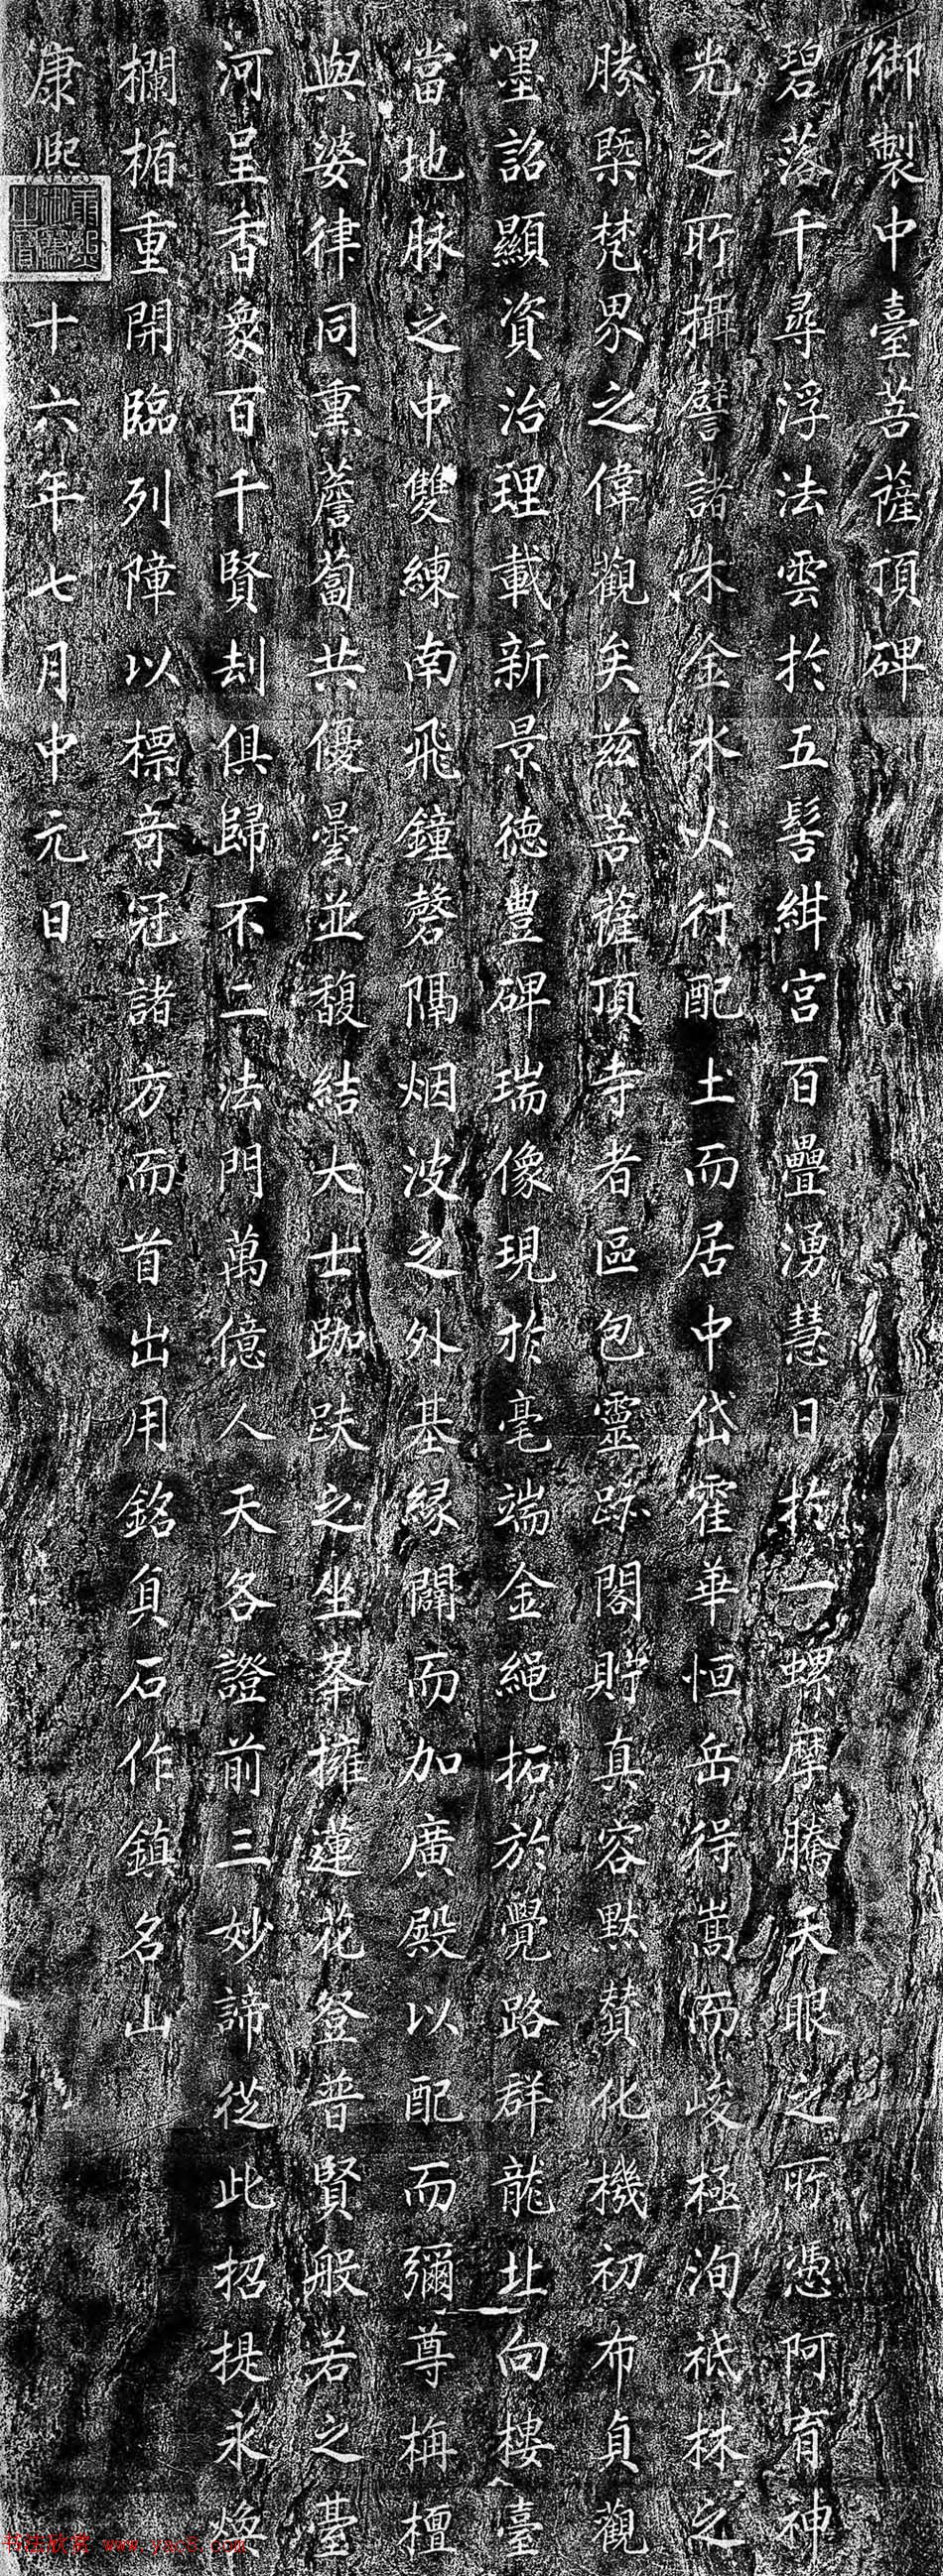 御製中臺菩薩頂碑
碧落千尋浮法雲於五髻紺宮百疊湧慧日於一螺摩騰天眼之所憑阿育神
光之所攝譬諸木金水火行配土而居中岱霍華恒岳得嵩而峻極洵祇林之
勝槩梵界之偉觀矣茲菩薩頂寺者區包靈跡閣貯真容默贊化機初布貞觀
墨詔顯資治理載新景德豐碑瑞像現於毫端金繩拓於覺路群龍北向樓臺
當地脉之中雙練南飛鐘磬隔烟波之外基緣闢而加廣殿以配而彌尊栴檀
與婆律同熏薝蔔共優曇並馥結大士跏趺之坐峯擁蓮花登普賢般若之臺
河呈香象百千賢刦俱歸不二法門萬億人天各證前三妙諦從此招提永煥
欄楯重開臨列障以標奇冠諸方而首出用銘貞石作鎮名山
康熙 十六年七月中元日
书法欣赏 www.yac8.com